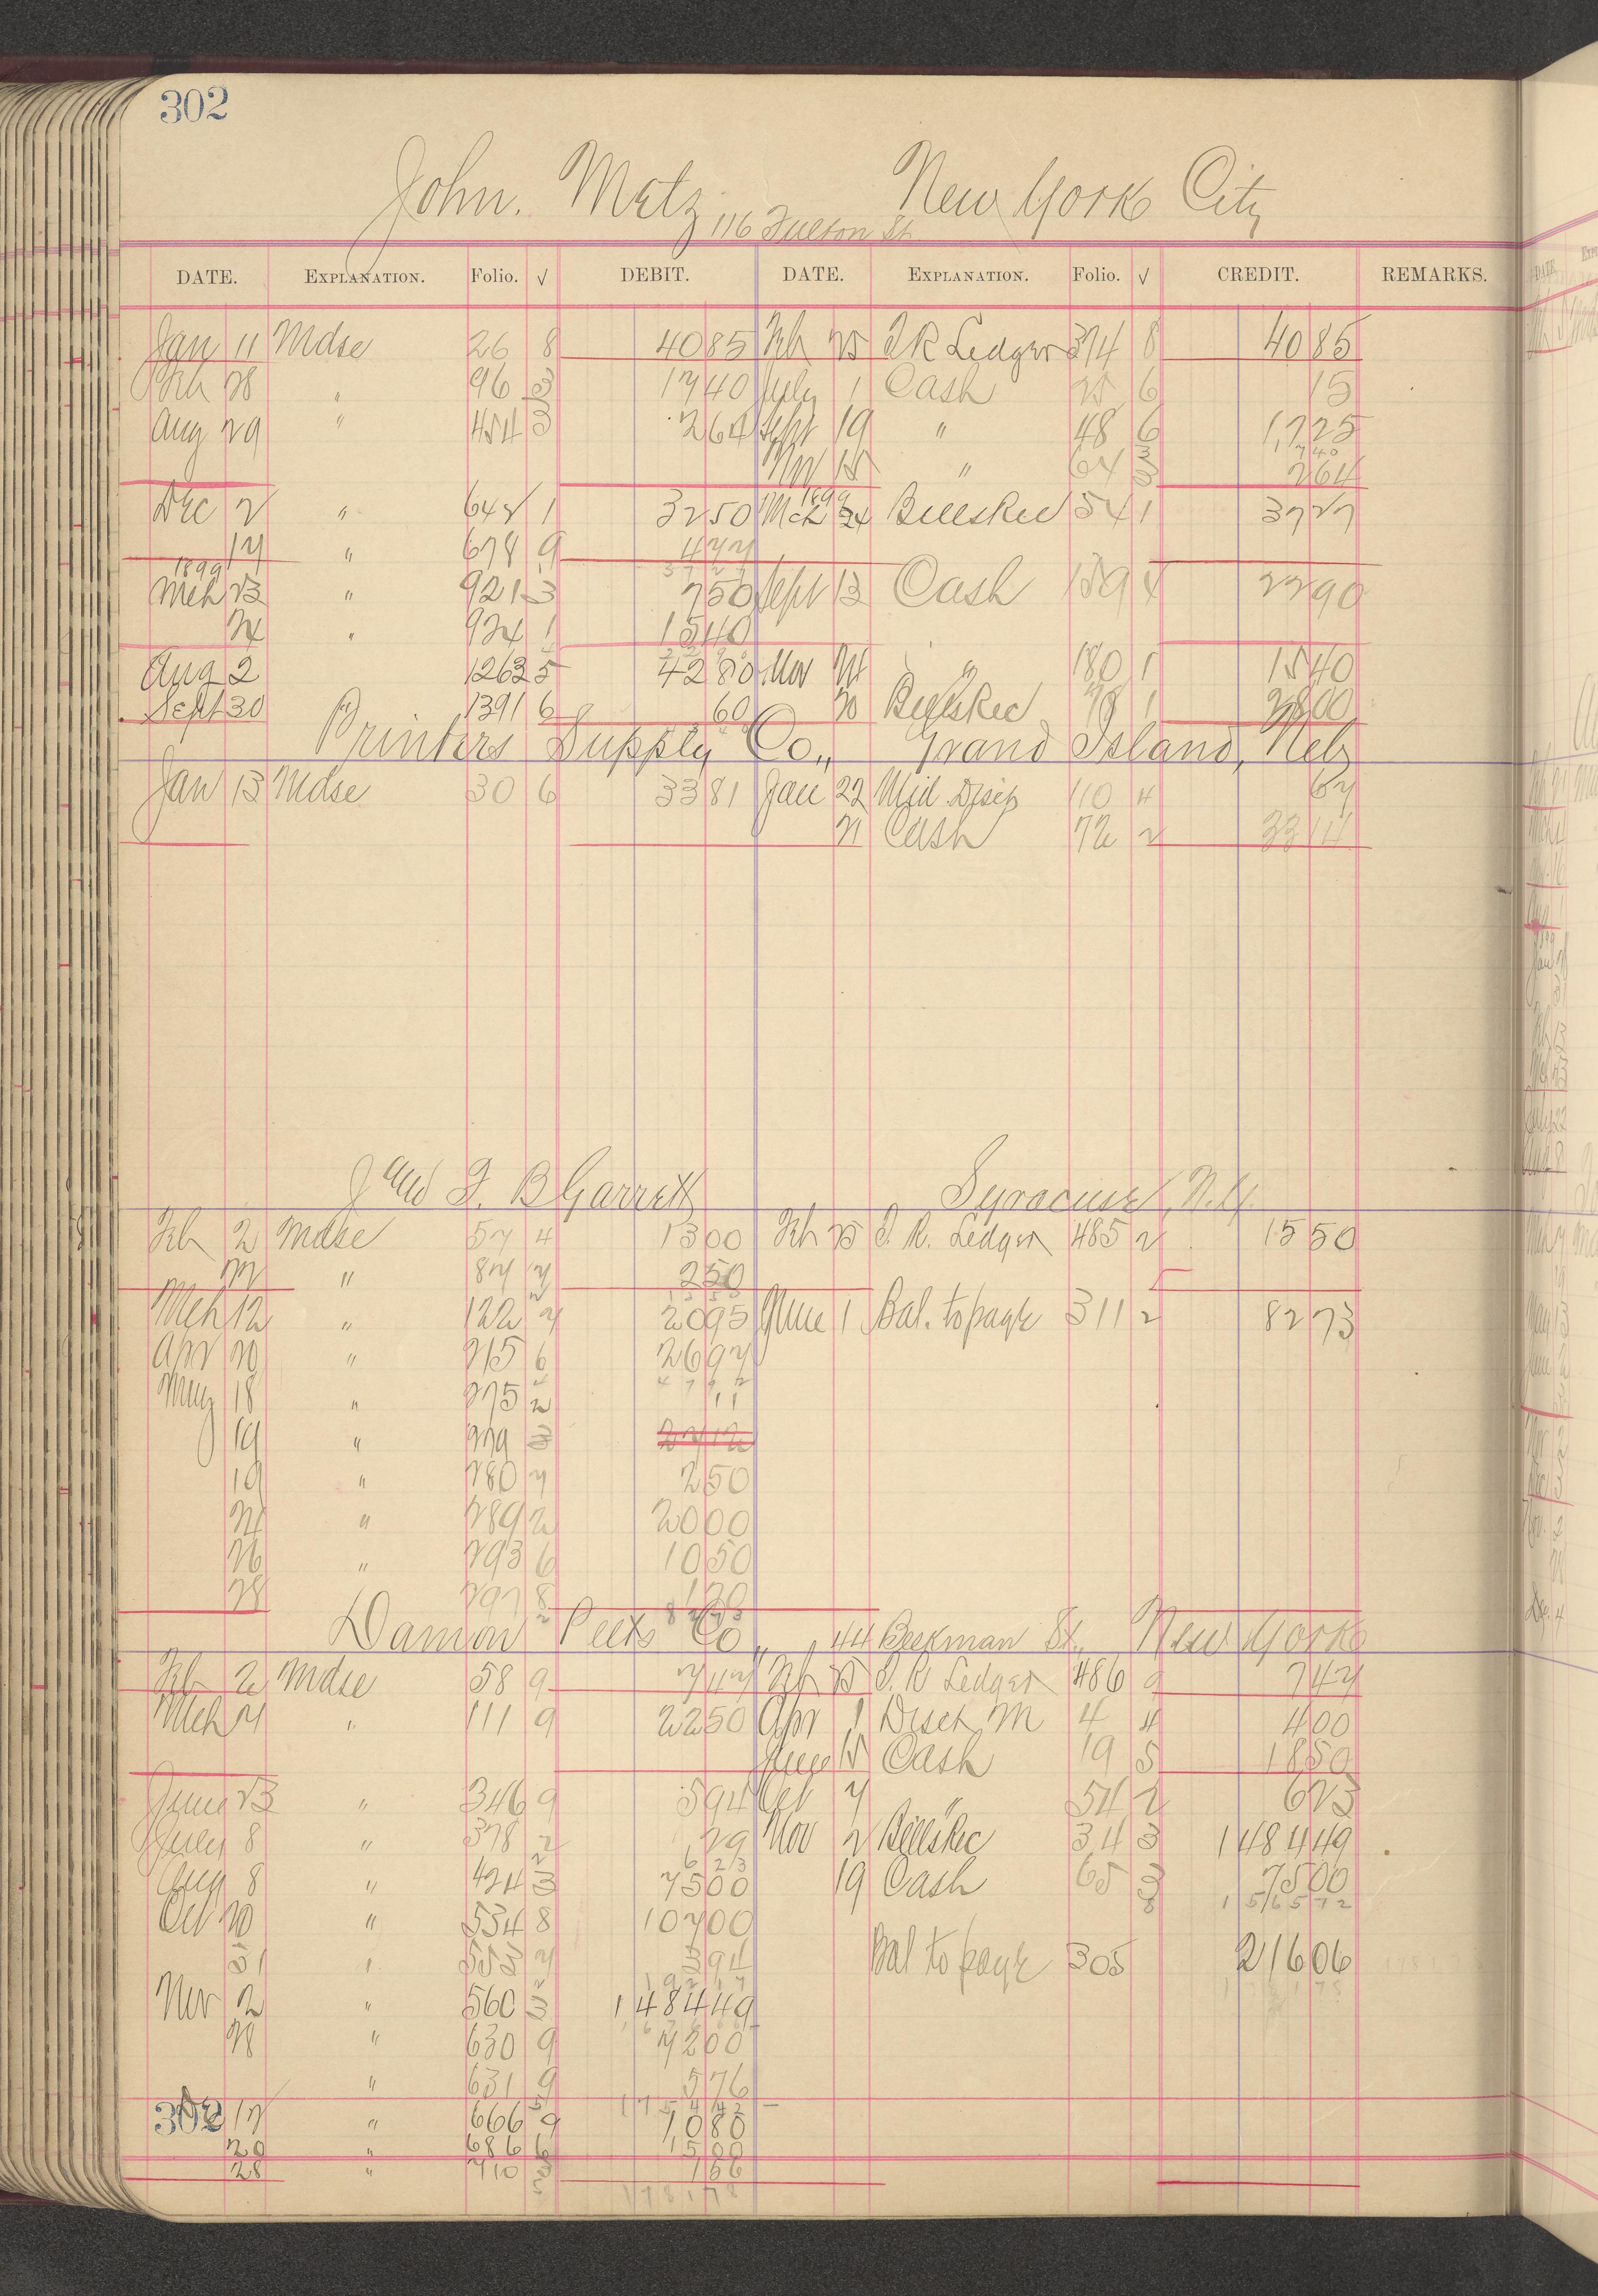 302
John. Metz New York City
116 Fulton St.
DATE. EXPLANATION. Folio. √ DEBIT. DATE. EXPLANATION. Folio. √ CREDIT. REMARKS.
Jan 11 Mdse 26 8 40 85 Feb 25 I R Ledger 374 8 40 85
Feb 28 " 96 3 17 40 July 1 Cash 25 6 15
Aug 29 " 454 3 2 64 Sept 19 " 48 6 17 25
Nov 15 " 64 3 2 64
Dec 2 " 642 1 32 50 1899 Mch 24 Bills Rec 54 1 37 27
17 " 678 9 4 77
1899
Mch 23 " 921 3 7 50 Sept 13 Cash 159 4 22 90
24 " 924 1 15 40
Aug 2 1263 5 42 80 Nov 14 " 180 1 15 40
Sept 30 " 1391 6 60 20 Bills Rec 78 1 28 00
Printers Supply Co., Grand Island, Neb
Jan 13 Mdse 30 6 33 81 Jan 22 Mid Disc 110 4 67
21 Cash 72 2 33 14
J and F. B Garrett Syracuse, N.Y.
Feb 2 Mdse 57 4 13 00 Feb 25 I. R. Ledger 485 2 15 50
" 87 7 2 50
Mch 12 " 122 7 20 95 June 1 Bal. to page 311 2 82 73
Apr 20 " 215 6 26 97
May 18 " 275 2 11
19 " 279 3 27 12
19 " 280 7 2 50
24 " 289 2 20 00
26 " 293 6 10 50
28 297 8 1 70
82 73
Damon Peets Co., 44 Beekman St., New York
Feb 2 Mdse 58 9 7 47 Feb 25 I. R Ledger 486 9 7 47
Mch 7 " 111 9 22 50 Apr 1 Disct M 4 4 4 00
June 15 Cash 19 5 18 50
June 23 " 346 9 5 94 Oct 7 " 54 2 6 23
July 8 " 378 2 29 Nov 2 Bills Rec 34 3 1484 49
6 23
Aug 8 " 424 3 75 00 19 Cash 65 3 75 00
1565 72
Oct 20 " 534 8 107 00
31 " 553 7 3 94 Bal to page 305 216 06
Nov 2 " 560 3 1484 49
28 " 630 9 72 00
" 631 9 5 76
302 17 " 666 9 10 80
20 " 686 6 15 00
28 " 710 3 1 56
1781 78